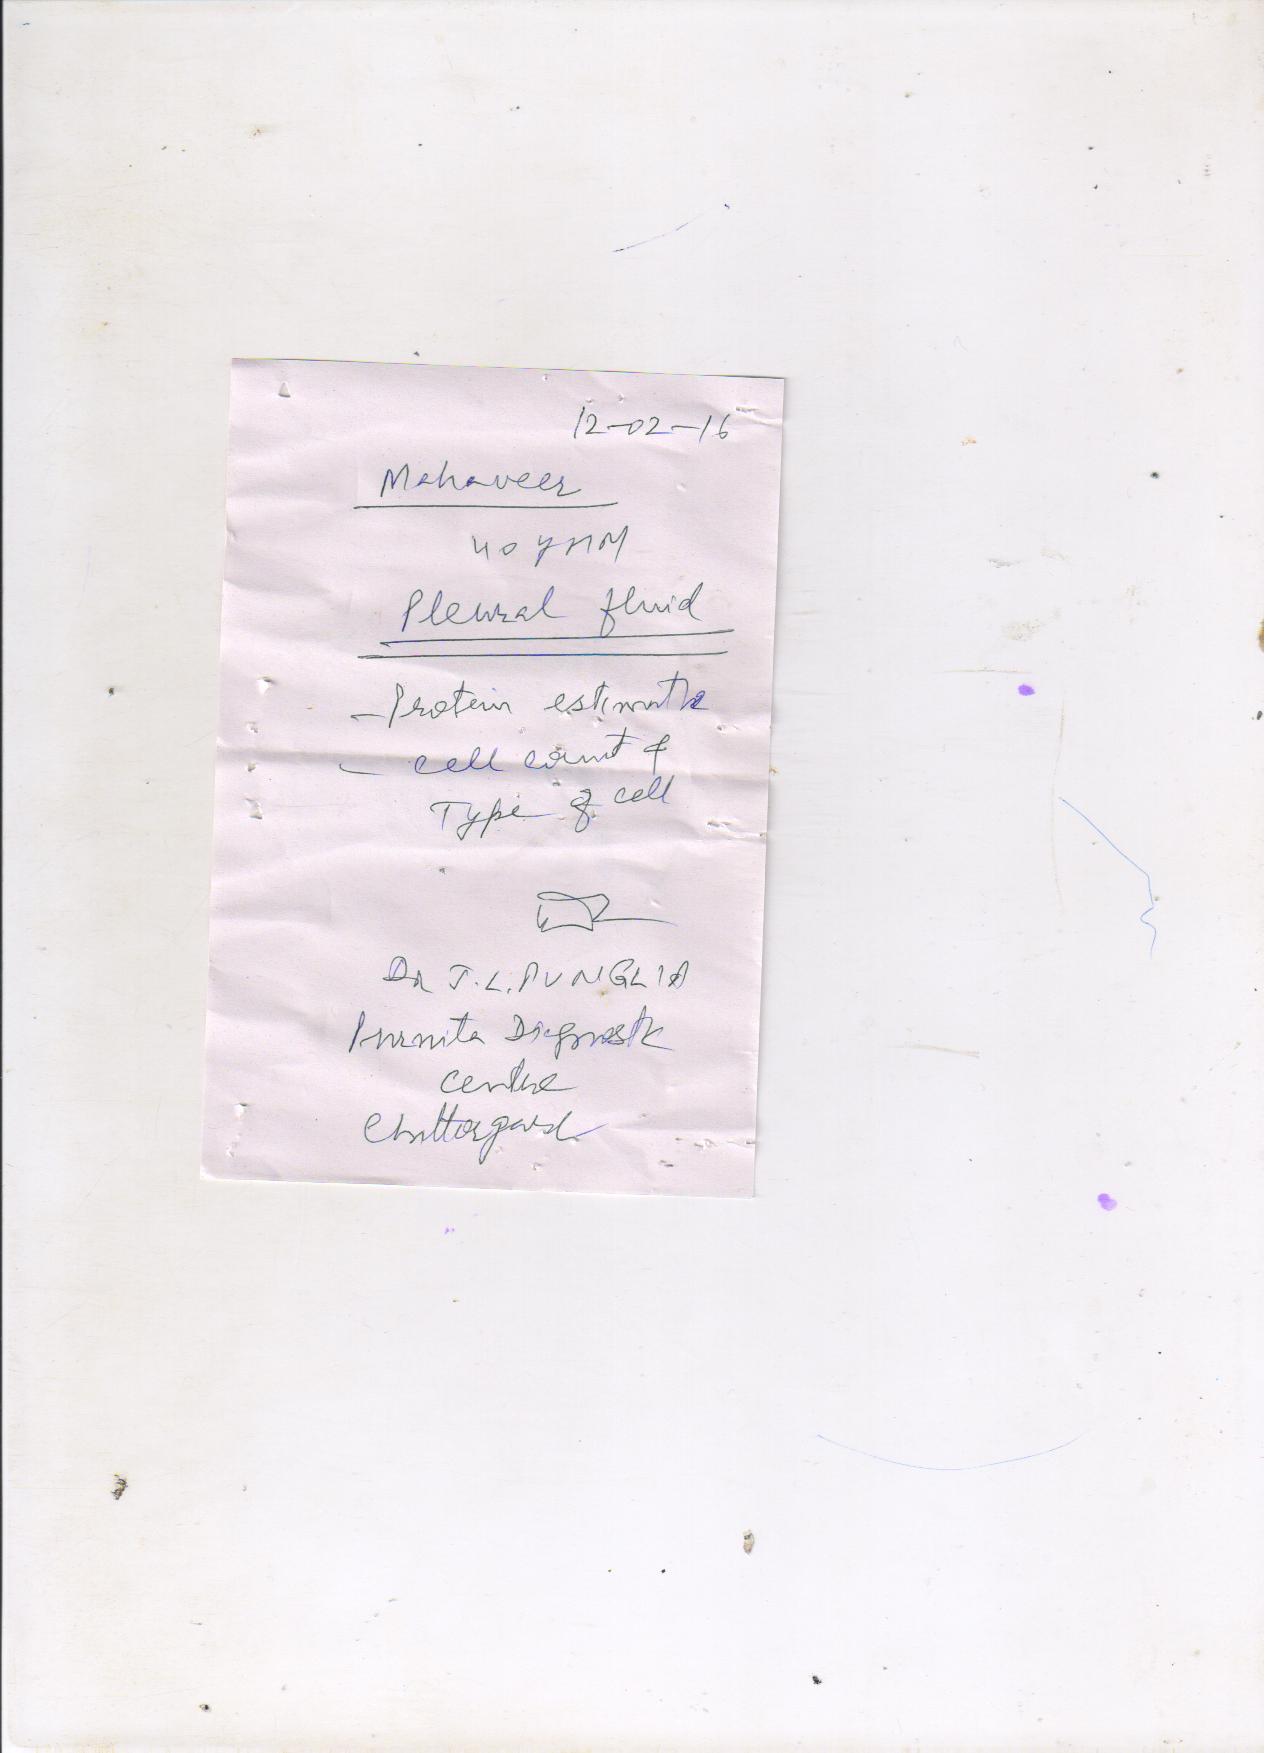 12-02-16
Mahaveer
40 yrs M
Pleural fluid
- Protein estimate
- cell count &
Type of cell
Dr J.L. PUNGLIA
Purnita Diagnostic
centre
Chittorgarh